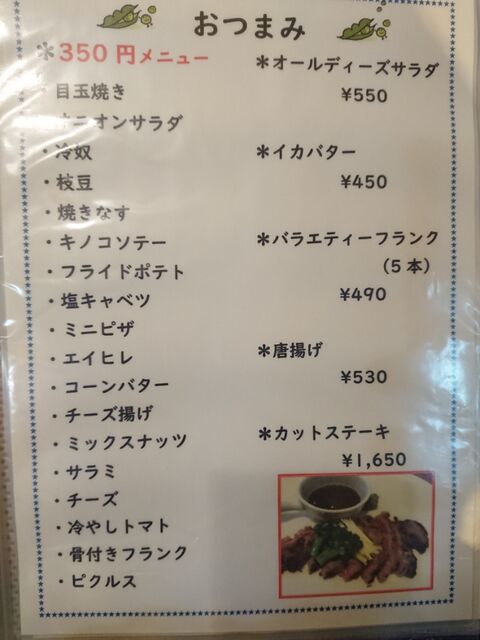 おつまみ
＊350円メニュー
・目玉焼き
ニオンサラダ
・冷奴
・枝豆
・焼きなす
・キノコソテー
・フライドポテト
・塩キャベツ
・ミニピザ
・エイヒレ
・コーンバター
・チーズ揚げ
・ミックスナッツ
・サラミ
・チーズ
・冷やしトマト
・骨付きフランク
・ピクルス
＊オールディーズサラダ
¥550
＊イカバター
¥450
＊バラエティーフランク
（5本）
¥490
＊唐揚げ
¥530
＊カットステーキ
¥1,650